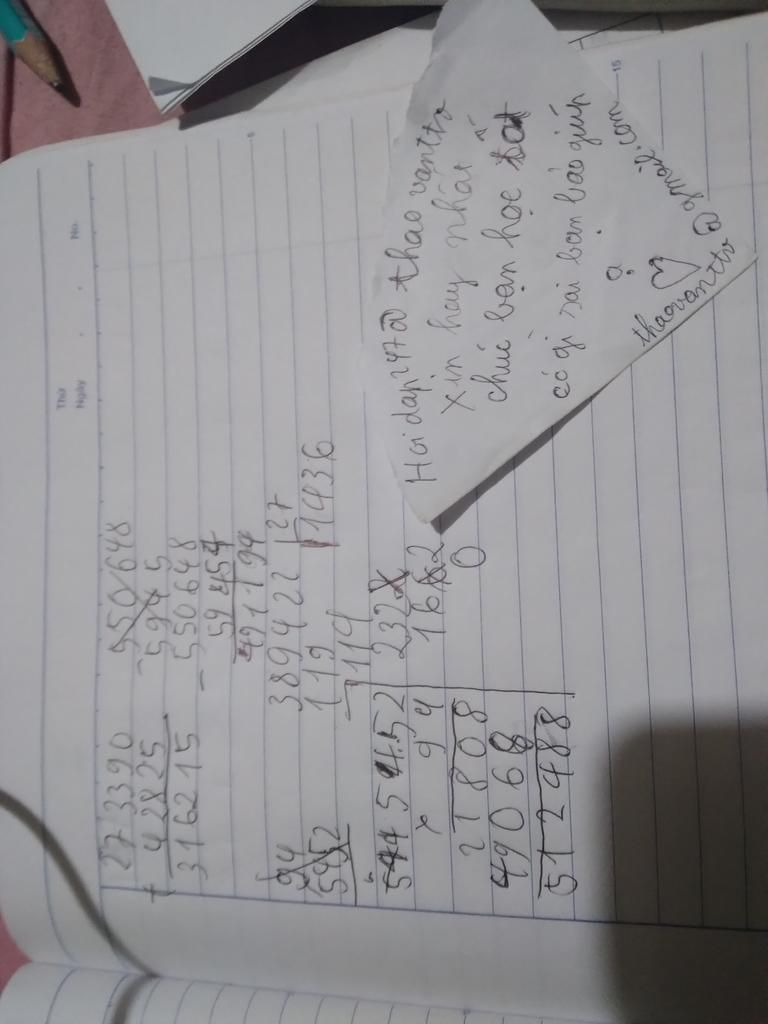 Thứ
Ngày
No.
273390
+ 42825
316215
550648
- 5945
550648
- 59454
491194
389422 | 27
119
1114
11436
94
5452
5452
x 94
21808
49068
512488
232
1662
0
Hỏi dap247 @ thao vanttv
xin hay nhất
chúc bạn học tốt
có gì sai bạn báo giúp
ạ
thaovanttv @ gmail.com
15